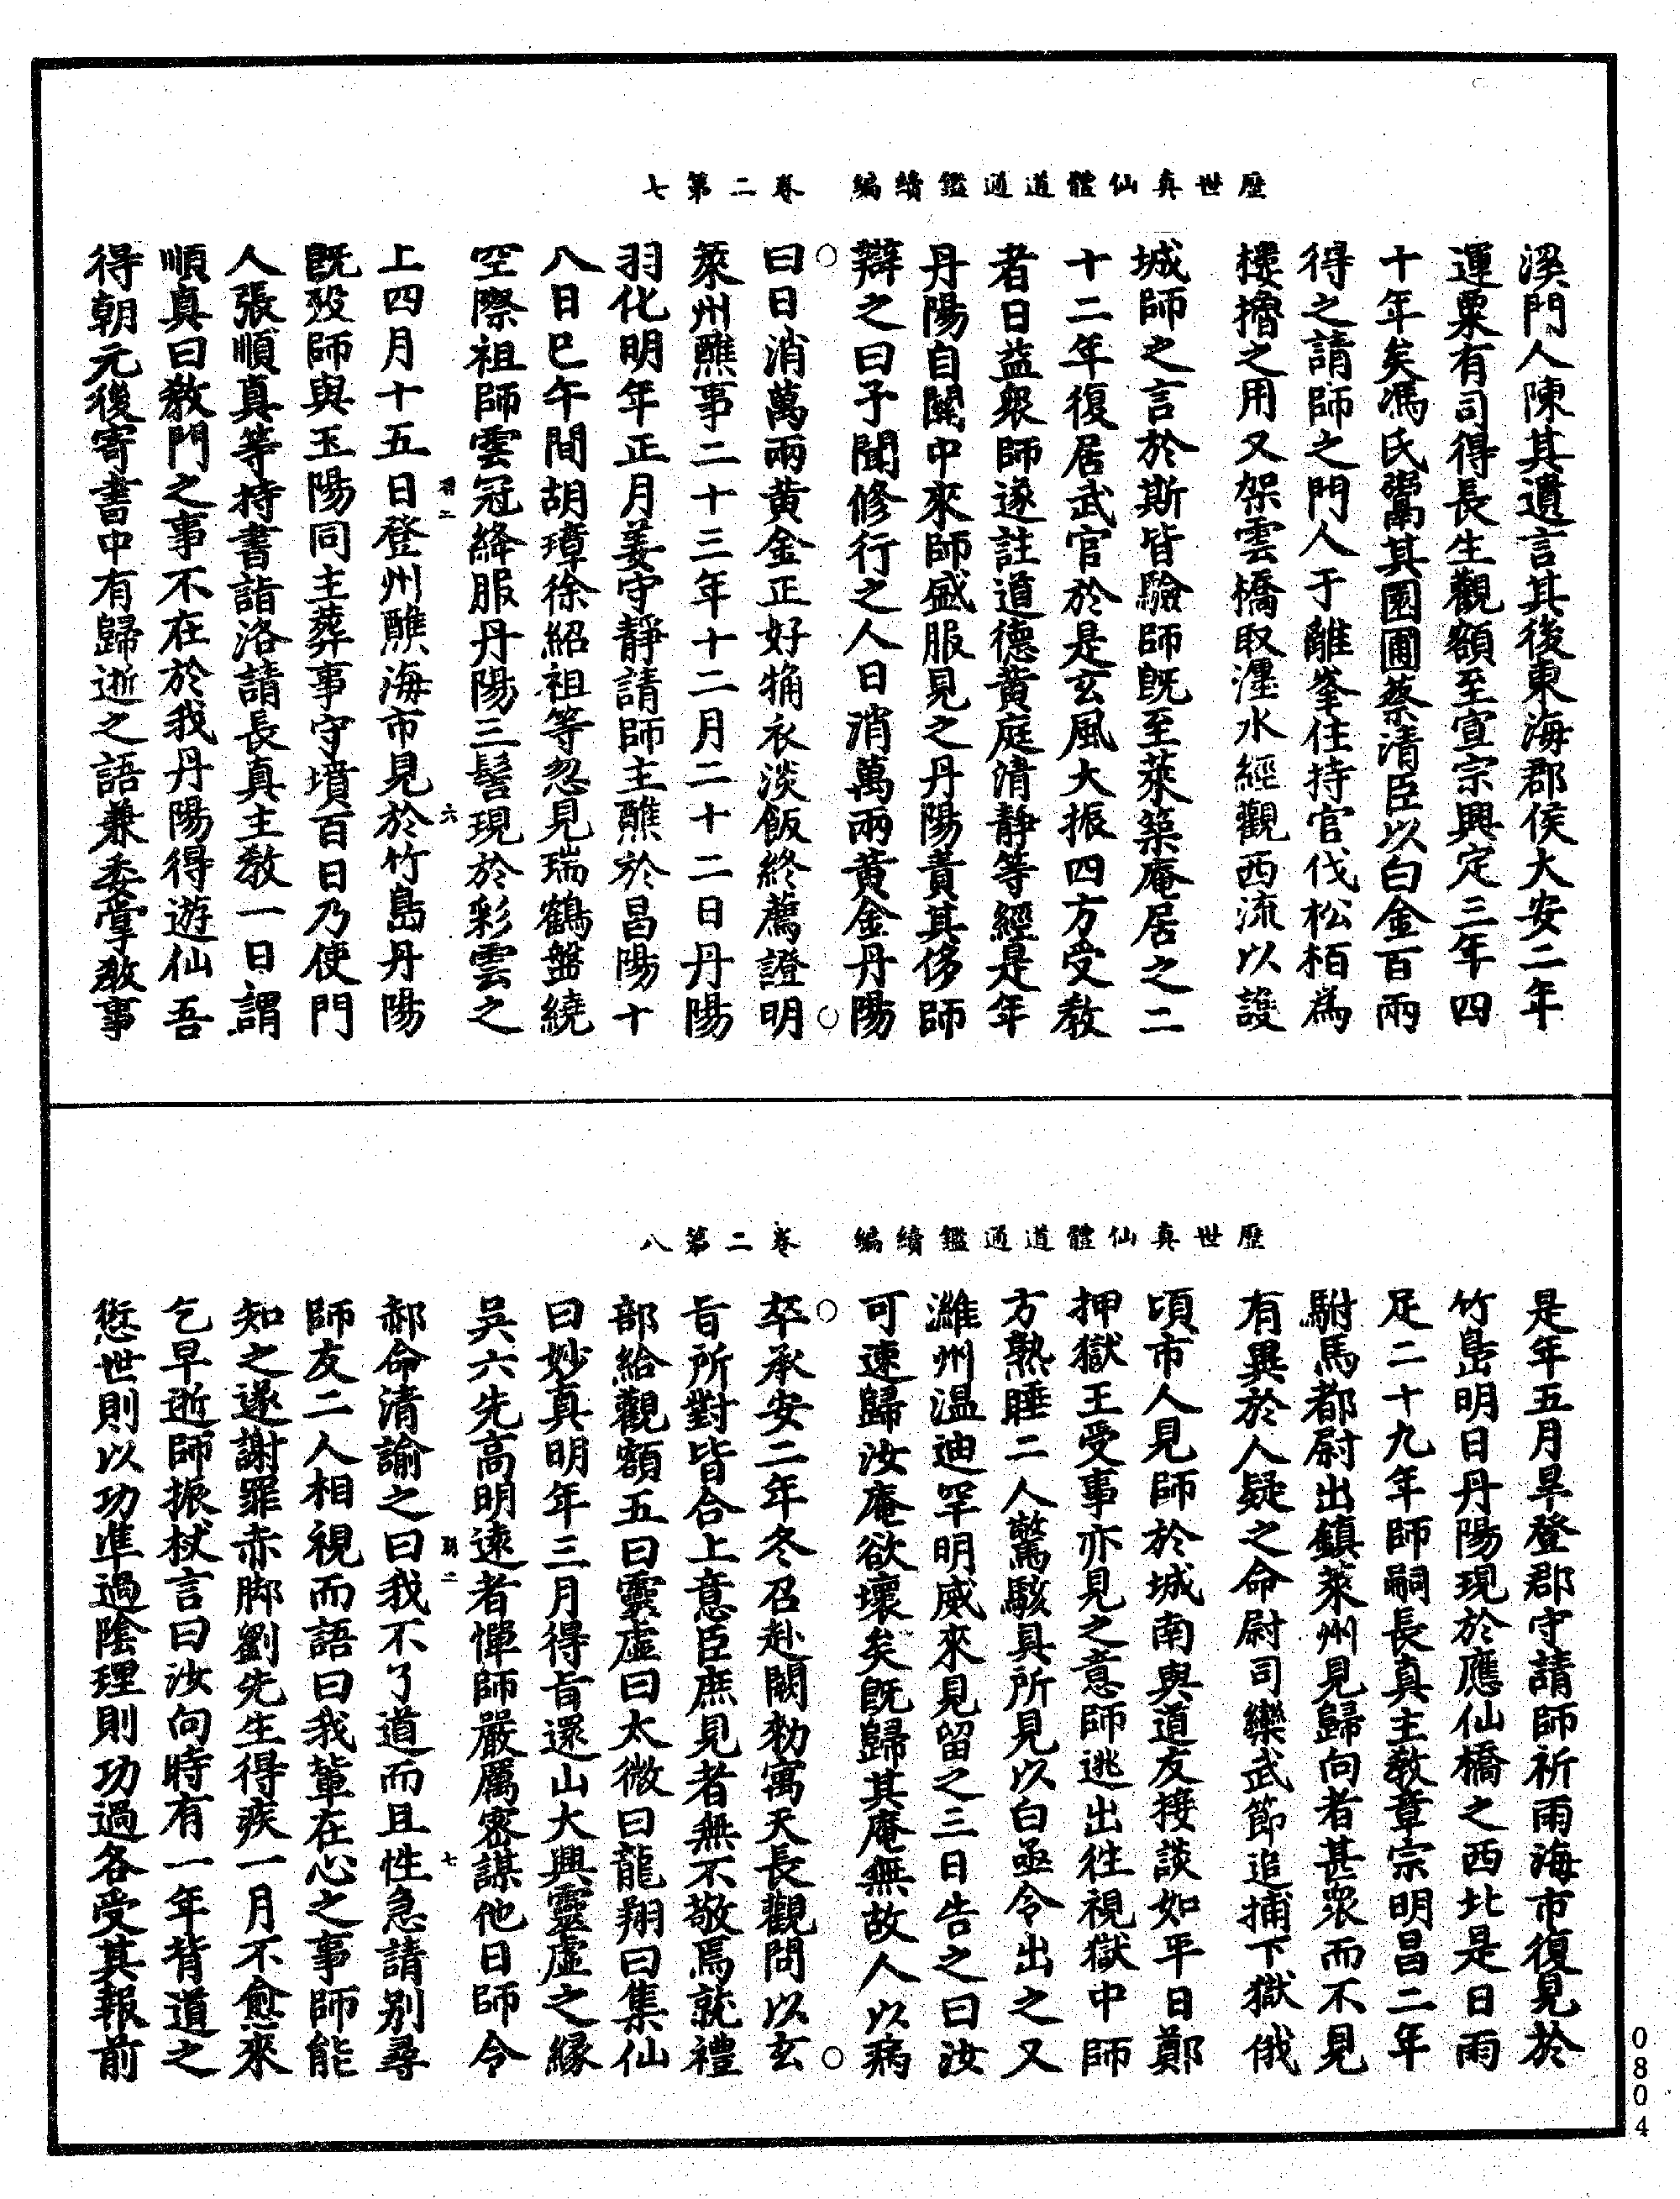 歷世真仙體道通鑑續編　卷二第七
溪門人陳其遺言其後東海郡侯大安二年
運粟有司得長生觀額至宣宗興定三年四
十年矣馮氏鬻其園圃蔡清臣以白金百兩
得之請師之門人于離峯住持官伐松栢爲
樓擼之用又架雲橋取瀍水經觀西流以設
城師之言於斯皆驗師既至萊築庵居之二
十二年復居武官於是玄風大振四方受教
者日益衆師遂註道德黃庭清靜等經是年
丹陽自關中來師盛服見之丹陽責其侈師
辯之曰予聞修行之人日消萬兩黃金丹陽
曰日消萬兩黃金正好觕衣淡飯終薦證明
萊州醮事二十三年十二月二十二日丹陽
羽化明年正月姜守靜請師主醮於昌陽十
八日巳午間胡璋徐紹祖等忽見瑞鶴盤繞
空際祖師雲冠絳服丹陽三髻現於彩雲之
上四月十五日登州醮海市見於竹島丹陽
既歿師與玉陽同主葬事守墳百日乃使門
人張順真等持書詣洛請長真主教一日謂
順真曰教門之事不在於我丹陽得遊仙吾
得朝元後寄書中有歸逝之語兼委掌教事
六
歷世真仙體道通鑑續編　卷二第八
是年五月旱登郡守請師祈雨海市復見於
竹島明日丹陽現於應仙橋之西北是日雨
足二十九年師嗣長真主教章宗明昌二年
駙馬都尉出鎮萊州見歸向者甚衆而不見
有異於人疑之命尉司欒武節追捕下獄俄
頃市人見師於城南與道友接談如平日鄭
押獄王受事亦見之意師逃出徃視獄中師
方熟睡二人驚駭具所見以白亟令出之又
濰州温迪罕明威來見留之三日告之曰汝
可速歸汝庵欲壞矣既歸其庵無故人以病
卒承安二年冬召赴闕勑寓天長觀問以玄
旨所對皆合上意臣庶見者無不敬焉就禮
部給觀額五曰靈虛曰太微曰龍翔曰集仙
曰妙真明年三月得旨還山大興靈虛之緣
吳六先高明遠者憚師嚴厲密謀他日師令
郝命清諭之曰我不了道而且性急請别尋
師友二人相視而語曰我輩在心之事師能
知之遂謝罪赤脚劉先生得疾一月不愈來
乞早逝師振杖言曰汝向時有一年背道之
愆世則以功準過陰理則功過各受其報前
七
0804